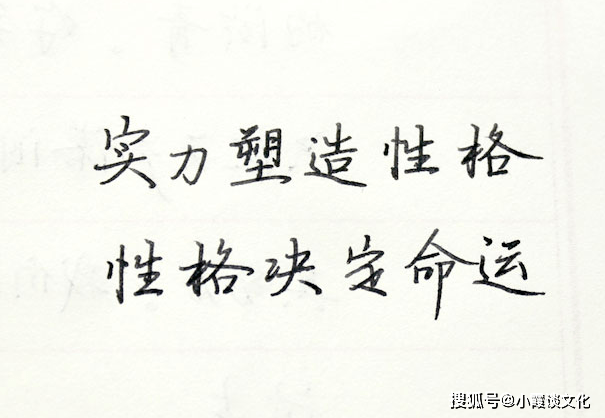 实力塑造性格
性格决定命运
搜狐号@小霞谈文化